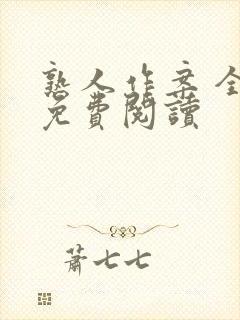 熟人作案全
免費閱讀
蕭七七